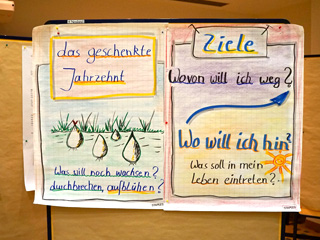 das geschenkte
Jahrzehnt
Was will noch wachsen?
durchbrechen, aufblühen?
Ziele
Wovon will ich weg?
Wo will ich hin?
Was soll in mein
Leben eintreten?